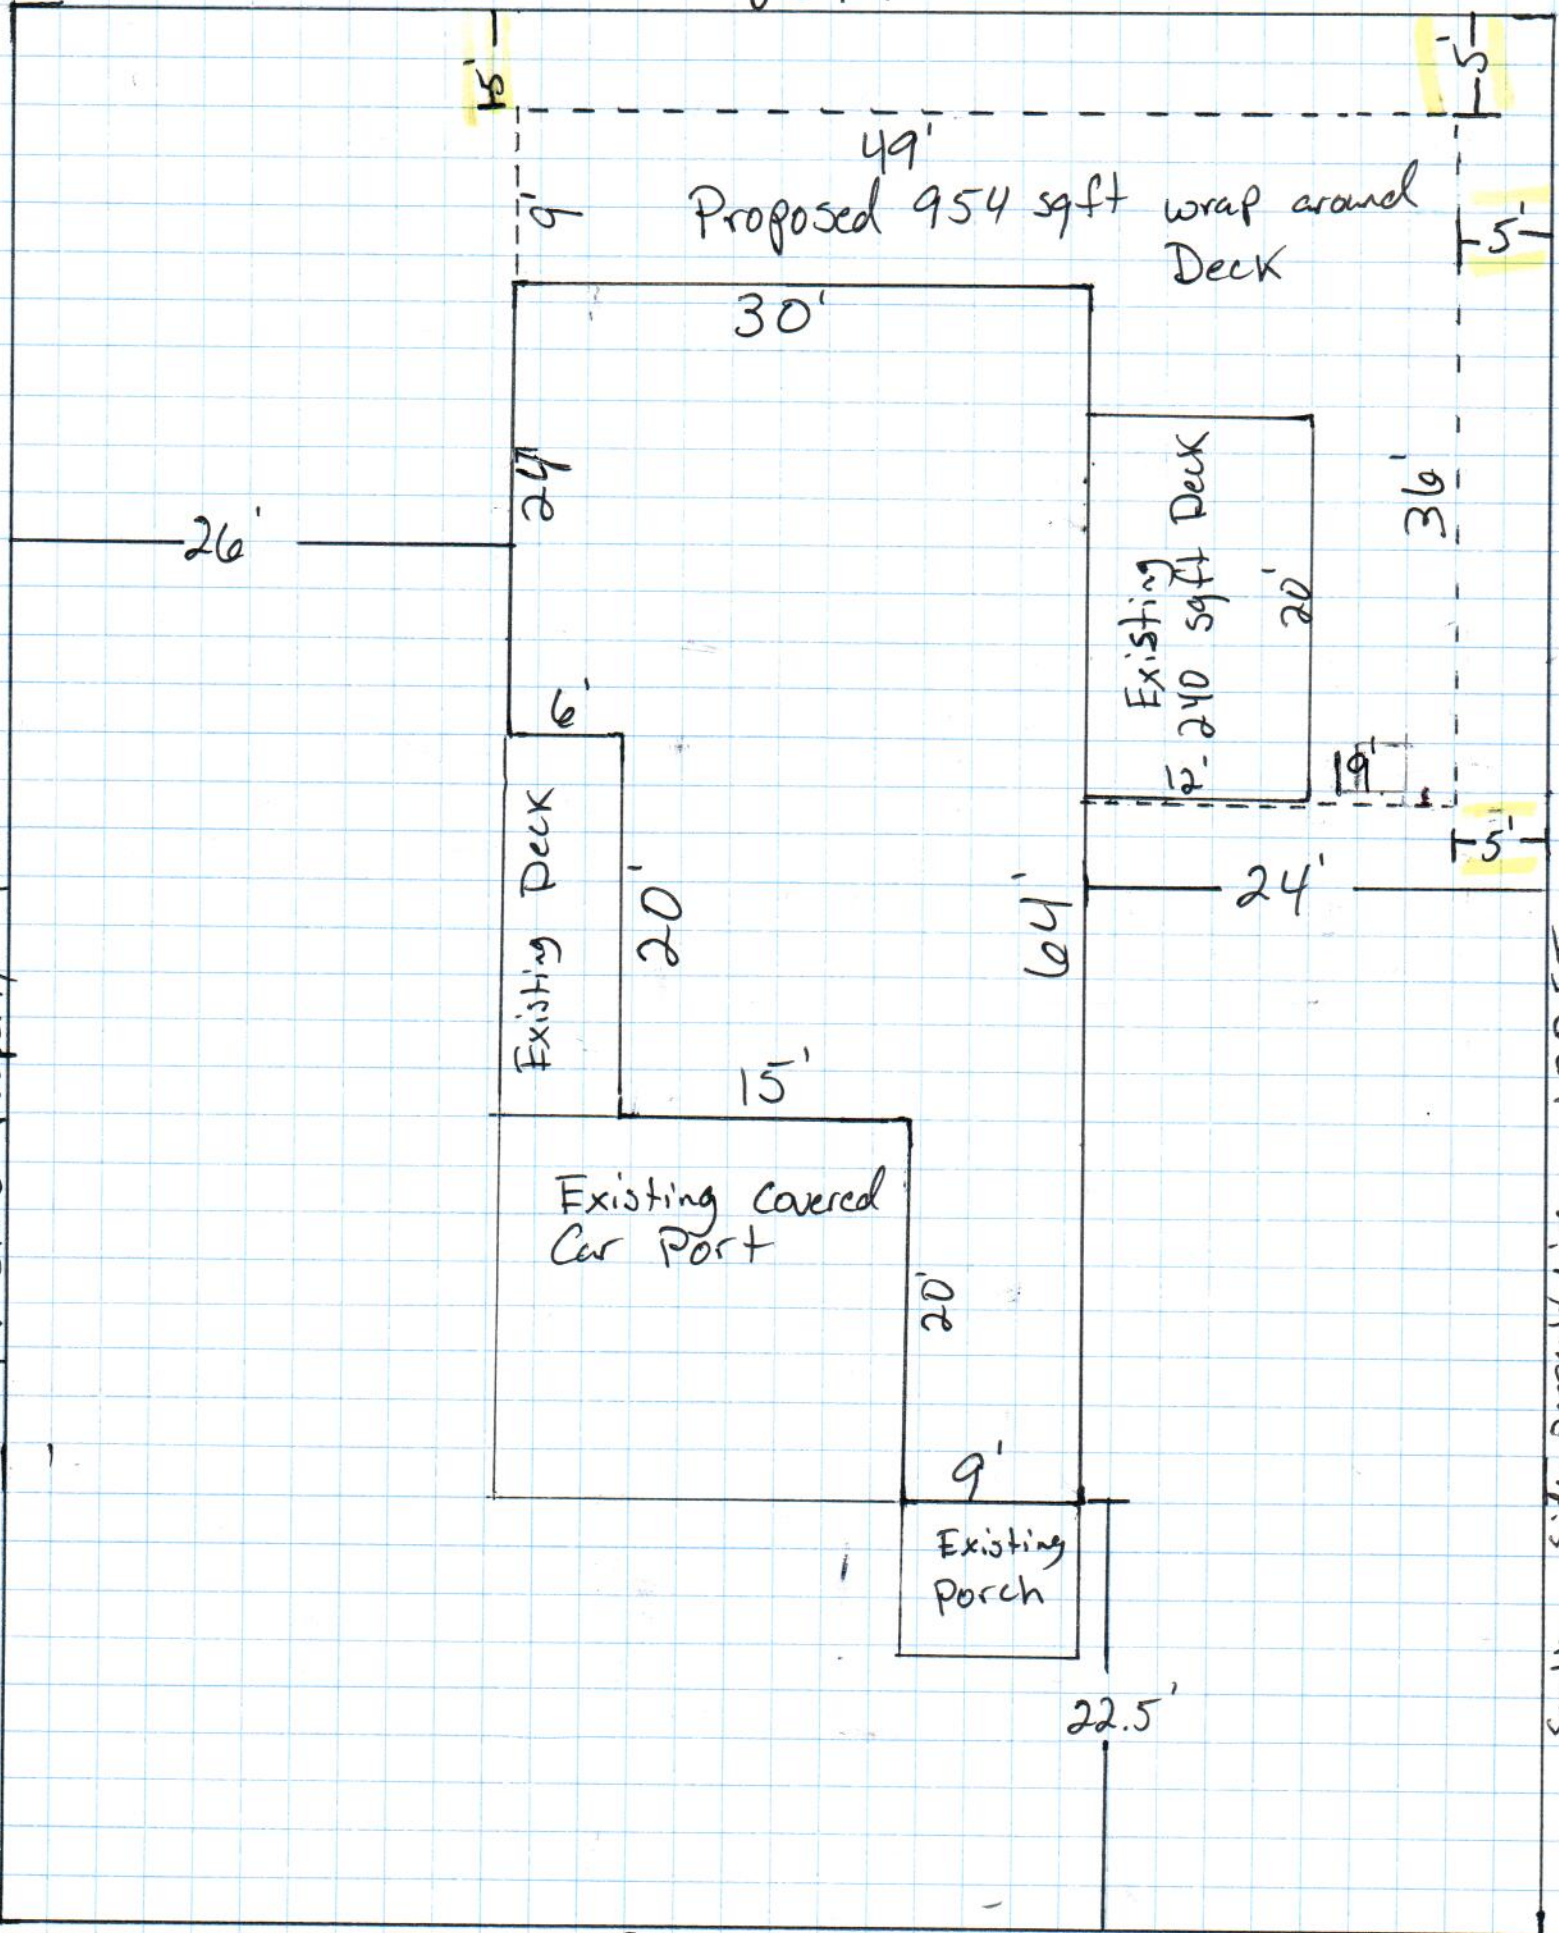 5'
5'
49'
9'
Proposed 954 sqft wrap around
Deck
5'
30'
24'
26'
Existing
240 sqft Deck
20'
36'
12'
19'
6'
5'
24'
Existing Deck
20'
64'
15'
Existing Covered
Car Port
20'
9'
Existing
Porch
22.5'